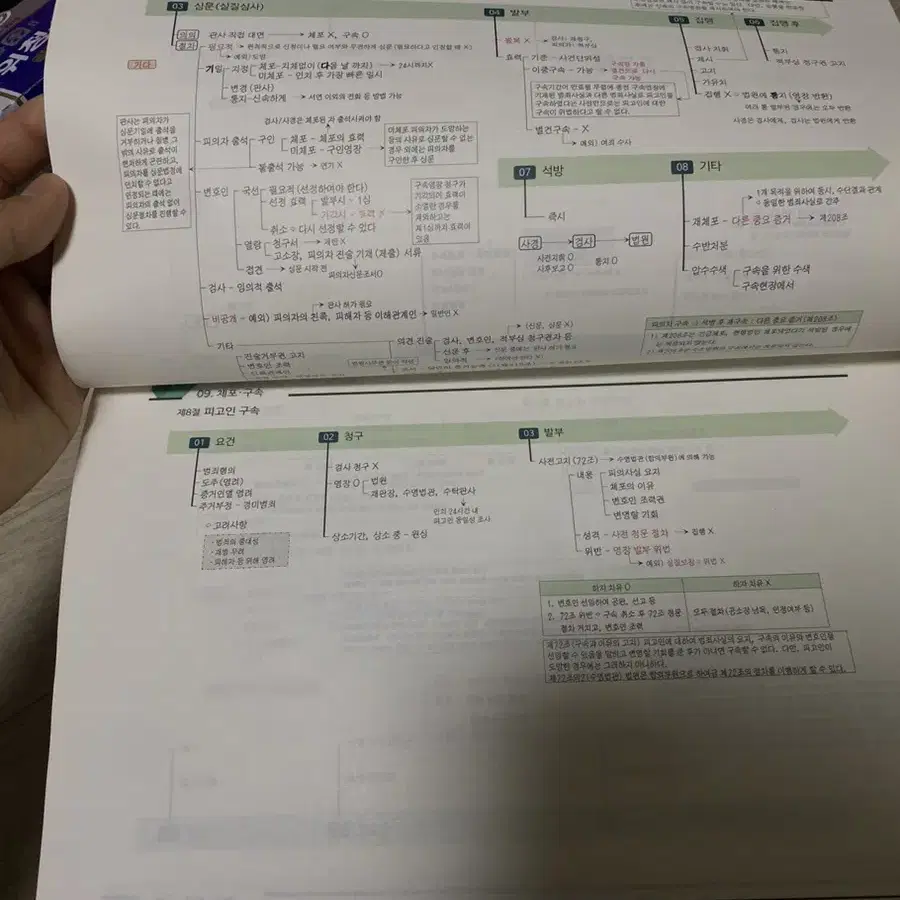 03 심문(실질심사)
의의 판사 직접 대면 → 체포 X, 구속 O
절차 필요적
예외) 도망
기일 지정 체포-지체없이 (다음 날 까지) → 24시까지X
미체포 - 인치 후 가장 빠른 일시
변경 (판사)
통지-신속하게 → 서면 이외의 전화 등 방법 가능
기다
검사/사경은 체포된 자 출석시켜야 함
판사는 피의자가
심문기일에 출석을
거부하거나 질병 그
밖의 사유로 출석이
현저하게 곤란하고,
피의자를 심문법정에
인치할 수 없다고
인정되는 때에는
피의자의 출석 없이
심문절차를 진행할 수
있다.
피의자 출석 구인 체포 - 체포의 효력
미체포 - 구인영장
미체포 피의자가 도망하는
등의 사유로 심문할 수 없는
경우 외에는 피의자를
구인한 후 심문
불출석 가능 → 연기 X
변호인 국선 필요적 (선정하여야 한다)
선정 효력 발부시 - 1심
기각시 - 효력 X
취소 = 다시 선정할 수 있다
구속영장 청구가
기각되어 효력이
소멸한 경우를
제외하고는
제1심까지 효력이
있음
열람 청구서 → 제한 X
고소장, 피의자 진술 기재 (제출) 서류
접견 → 심문 시작 전 피의자신문조서O
검사 - 임의적 출석
판사 허가 필요
비공개 - 예외) 피의자의 친족, 피해자 등 이해관계인 → 일반인 X
기타
진술거부권 고지
변호인 조력
의견 진술 검사, 변호인, 적부심 청구권자 등
(신문, 심문 X)
신문 후
04 발부
불복 X
효력 기준 - 사건단위설
이중구속 - 가능
구속기간이 만료될 무렵에 종전 구속영장에
기재된 범죄사실과 다른 범죄사실로 피고인을
구속하였다는 사정만으로는 피고인에 대한
구속이 위법하다고 할 수 없다.
별건구속 - X
예외) 여죄 수사
05 집행
검사 지휘
제시
고지
가유치
집행 X = 법원에 통지 (영장 반환)
여러 통 발부된 경우에는 모두 반환
사경은 검사에게, 검사는 법원에게 반환
06 집행 후
통지
적부심 청구권 고지
07 석방
즉시
사경 → 검사 → 법원
사전지휘 O
사후보고 O
통지 O
08 기타
1개 목적을 위하여 동시, 수단결과 관계
= 동일한 범죄사실로 간주
재체포 - 다른 중요 증거 → 제208조
수반처분
압수수색 구속을 위한 수색
구속현장에서
09. 체포·구속
제8절 피고인 구속
01 요건
범죄혐의
도주 (염려)
증거인멸 염려
주거부정 - 경미범죄
○ 고려사항
· 범죄의 중대성
· 재범 우려
· 피해자 등 위해 염려
02 청구
검사 청구 X
영장 O 법원
재판장, 수명법관, 수탁판사
인치 24시간 내
피고인 동일성 조사
상소기간, 상소 중 - 원심
03 발부
사전고지 (72조) → 수명법관 (합의부원)에 의해 가능
내용 피의사실 요지
체포의 이유
변호인 조력권
변명할 기회
성격 - 사전 청문 절차 → 집행 X
위반 - 영장 발부 위법
예외) 실질보장 = 위법 X
하자 치유 O
하자 치유 X
1. 변호인 선임하여 공판, 선고 등
2. 72조 위반 = 구속 취소 후 72조 청문
절차 거치고, 변호인 조력
모두 절차 (공소장 낭독, 인정여부 등)
제72조(구속과 이유의 고지) 피고인에 대하여 범죄사실의 요지, 구속의 이유와 변호인을
선임할 수 있음을 말하고 변명할 기회를 준 후가 아니면 구속할 수 없다. 다만, 피고인이
도망한 경우에는 그러하지 아니하다.
제72조의2(수명법관) 법원은 합의부원으로 하여금 제72조의 절차를 이행하게 할 수 있다.